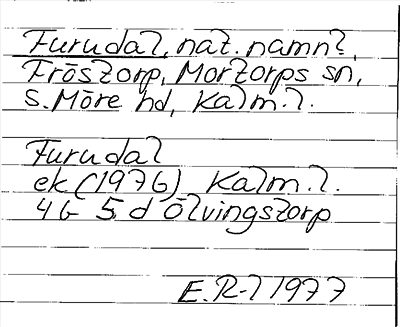 Furudal, nat. namn?,
Fröstorp, Mortorps sn,
S. Möre hd, Kalm. l.
Furudal
ek (1976) Kalm. l.
4G 5 d Ölvingstorp
E. R-l 1977